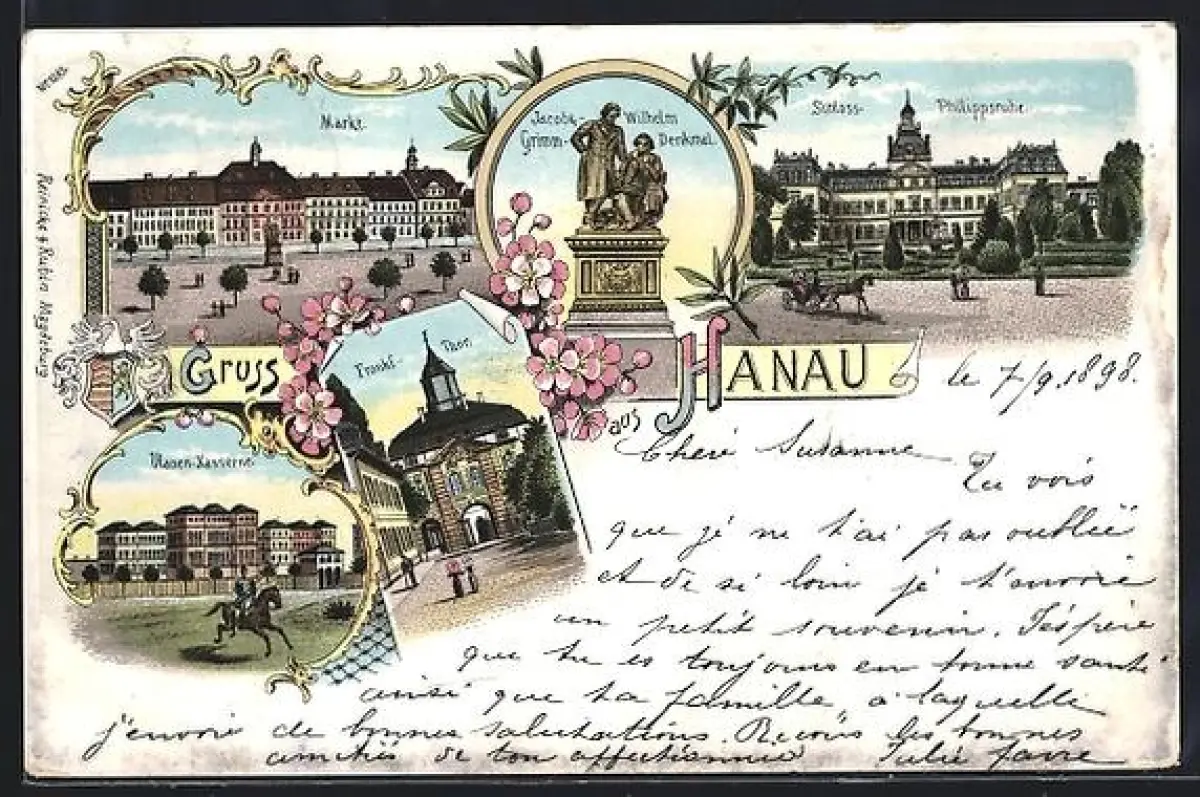 Markt.
Jacob u. Wilhelm
Grimm- Denkmal.
Schloss- Philippsruhe.
Reinicke & Rubin Magdeburg
Gruss
aus
HANAU
Frankf. Thor.
Ulanen-Kaserne.
le 7/9. 1898.
Cheré Susanne
Tu vois
que jé ne t'ai pas oublié
et de si loin je t'envoie
un petit souvenir. J'éspère
que tu es toujours en bonne santé
ainsi que ta famille, a laquelle
j'envoie de bonnes salutations. Reçois les bonnes
amitiés de ton affectionnée Julie Favre